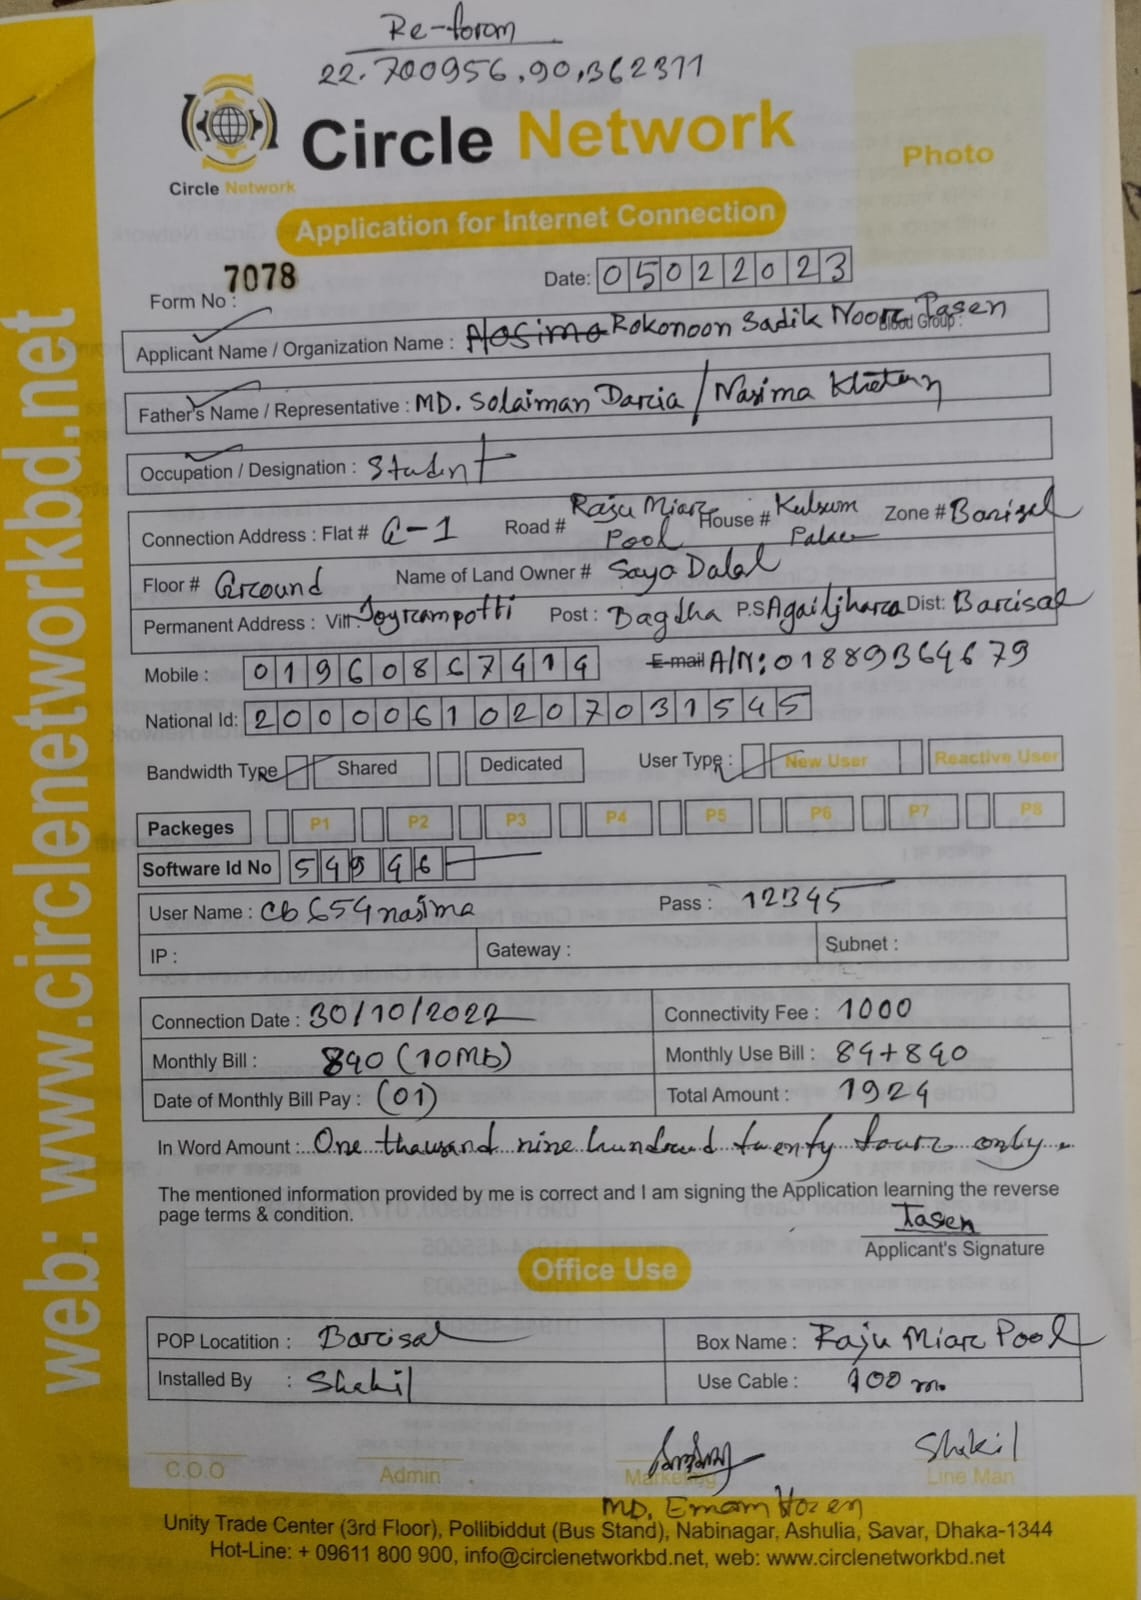 Re-form
22.700956,90.362311
Circle Network
Circle Network
Photo
Application for Internet Connection
Form No : 7078
Date: 05022023
Applicant Name / Organization Name : Rokonoon Sadik Noor Tasen Blood Group :
Father's Name / Representative : MD. Solaiman Darcia / Nasima Khatun
Occupation / Designation : Student
Connection Address : Flat # C-1 Road # Raju Miar Pool House # Kulsum Palace Zone # Barisal
Floor # Ground Name of Land Owner # Sayo Dalal
Permanent Address : Vill: Joyrampotti Post : Bagdha P.S Agailjhara Dist: Barisal
Mobile : 01960867414 E-mail A/N: 01889364679
National Id: 20000610207031545
Bandwidth Type Shared Dedicated User Type : New User Reactive User
Packeges P1 P2 P3 P4 P5 P6 P7 P8
Software Id No 54946
User Name : cb654nasima Pass : 12345
IP : Gateway : Subnet :
Connection Date : 30/10/2022 Connectivity Fee : 1000
Monthly Bill : 840 (10Mb) Monthly Use Bill : 84+840
Date of Monthly Bill Pay : (01) Total Amount : 1924
In Word Amount : One thousand nine hundred twenty four only
The mentioned information provided by me is correct and I am signing the Application learning the reverse
page terms & condition.
Tasen
Applicant's Signature
Office Use
POP Locatition : Barisal Box Name : Raju Miar Pool
Installed By : Shakil Use Cable : 100 m.
Shakil
C.O.O Admin Marketing Line Man
MD. Emam Hosen
Unity Trade Center (3rd Floor), Pollibiddut (Bus Stand), Nabinagar, Ashulia, Savar, Dhaka-1344
Hot-Line: + 09611 800 900, info@circlenetworkbd.net, web: www.circlenetworkbd.net
web: www.circlenetworkbd.net